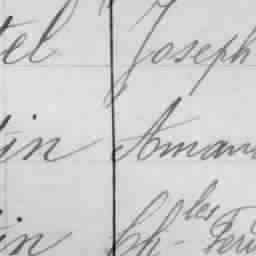 tel Joseph
in Aman
in Ch-les Fer